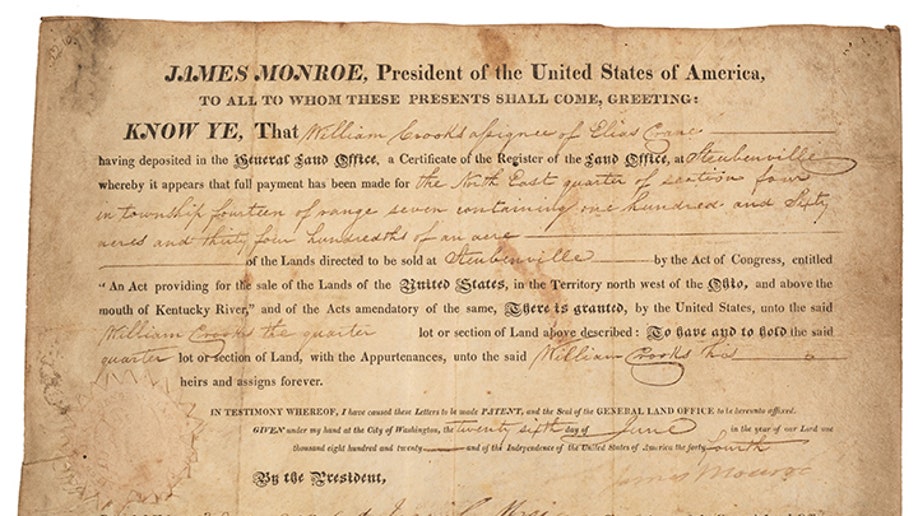 JAMES MONROE, President of the United States of America,
TO ALL TO WHOM THESE PRESENTS SHALL COME, GREETING:
KNOW YE, That William Crooks assignee of Elias Crane
having deposited in the General Land Office, a Certificate of the Register of the Land Office, at Steubenville
whereby it appears that full payment has been made for the North East quarter of section four
in township fourteen of range seven containing one hundred and Sixty
acres and thirty four hundredths of an acre
of the Lands directed to be sold at Steubenville by the Act of Congress, entitled
"An Act providing for the sale of the Lands of the United States, in the Territory north west of the Ohio, and above the
mouth of Kentucky River," and of the Acts amendatory of the same, There is granted, by the United States, unto the said
William Crooks the quarter lot or section of Land above described: To have and to hold the said
quarter lot or section of Land, with the Appurtenances, unto the said William Crooks his
heirs and assigns forever.
IN TESTIMONY WHEREOF, I have caused these Letters to be made PATENT, and the Seal of the GENERAL LAND OFFICE to be hereunto affixed.
GIVEN under my hand at the City of Washington, the twenty sixth day of June in the year of our Lord one
thousand eight hundred and twenty and of the Independence of the United States of America the forty fourth
James Monroe
By the President,